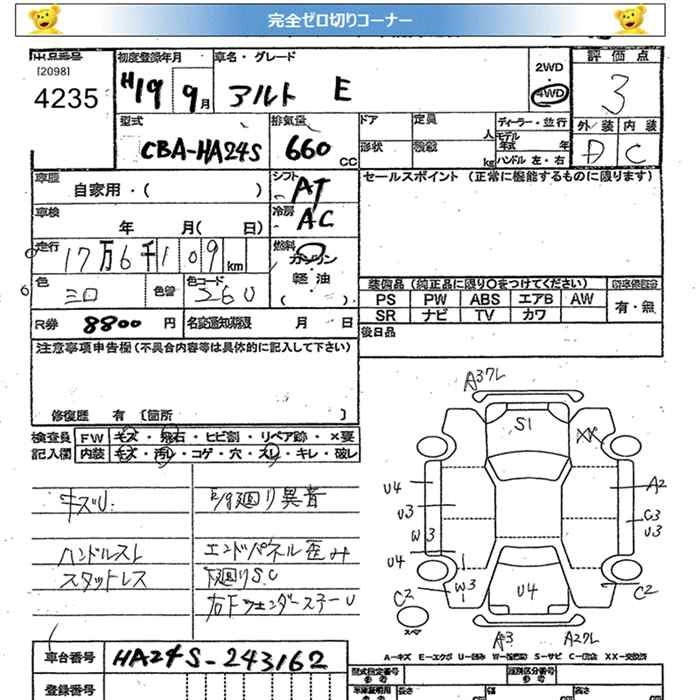 完全ゼロ切りコーナー
出品番号 初度登録年月 車名・グレード 2WD 評価点
[2098]
4235 H19 9月 アルト E 4WD 3
型式 排気量 ドア 定員 人 ディーラー・並行 外装 内装
CBA-HA24S 660 CC 形状 積載 kg モデル年式 年 D C
ハンドル 左・右
車歴 自家用・( ) シフト AT セールスポイント (正常に機能するものに限ります)
車検 年 月( 日) 冷房 AC
走行 17万6千109 km 燃料 ガソリン
軽油
( )
色 シロ 色替 色コード 26U 装備品 (純正品に限り○をつけてください)
PS PW ABS エアB AW 有・無
SR ナビ TV カワ
R券 8800 円 名変通知期限 月 日 後日品
注意事項申告欄(不具合内容等は具体的に記入して下さい)
修復歴 有 [箇所 ]
検査員 FW キズ・飛石・ヒビ割・リペア跡・×要
記入欄 内装 キズ・汚レ・コゲ・穴・スレ・キレ・破レ
キズU. E/g廻り異音
ハンドルスレ エンドパネル歪み
スタットレス 下廻りS.C
右Fフェンダーステー U
A3フレ
S1
XX
U4
A2
U3
C3
U3
W3
U4
W3
U4
C2
C2
スペア
A3
A2フレ
A-キズ E-エクボ U-凹み W-波補修 S-サビ C-腐蝕 XX-交換済
車台番号 HA24S-243162
型式指定番号 参考 類別区分番号 参考
登録番号 長さ 幅 高さ